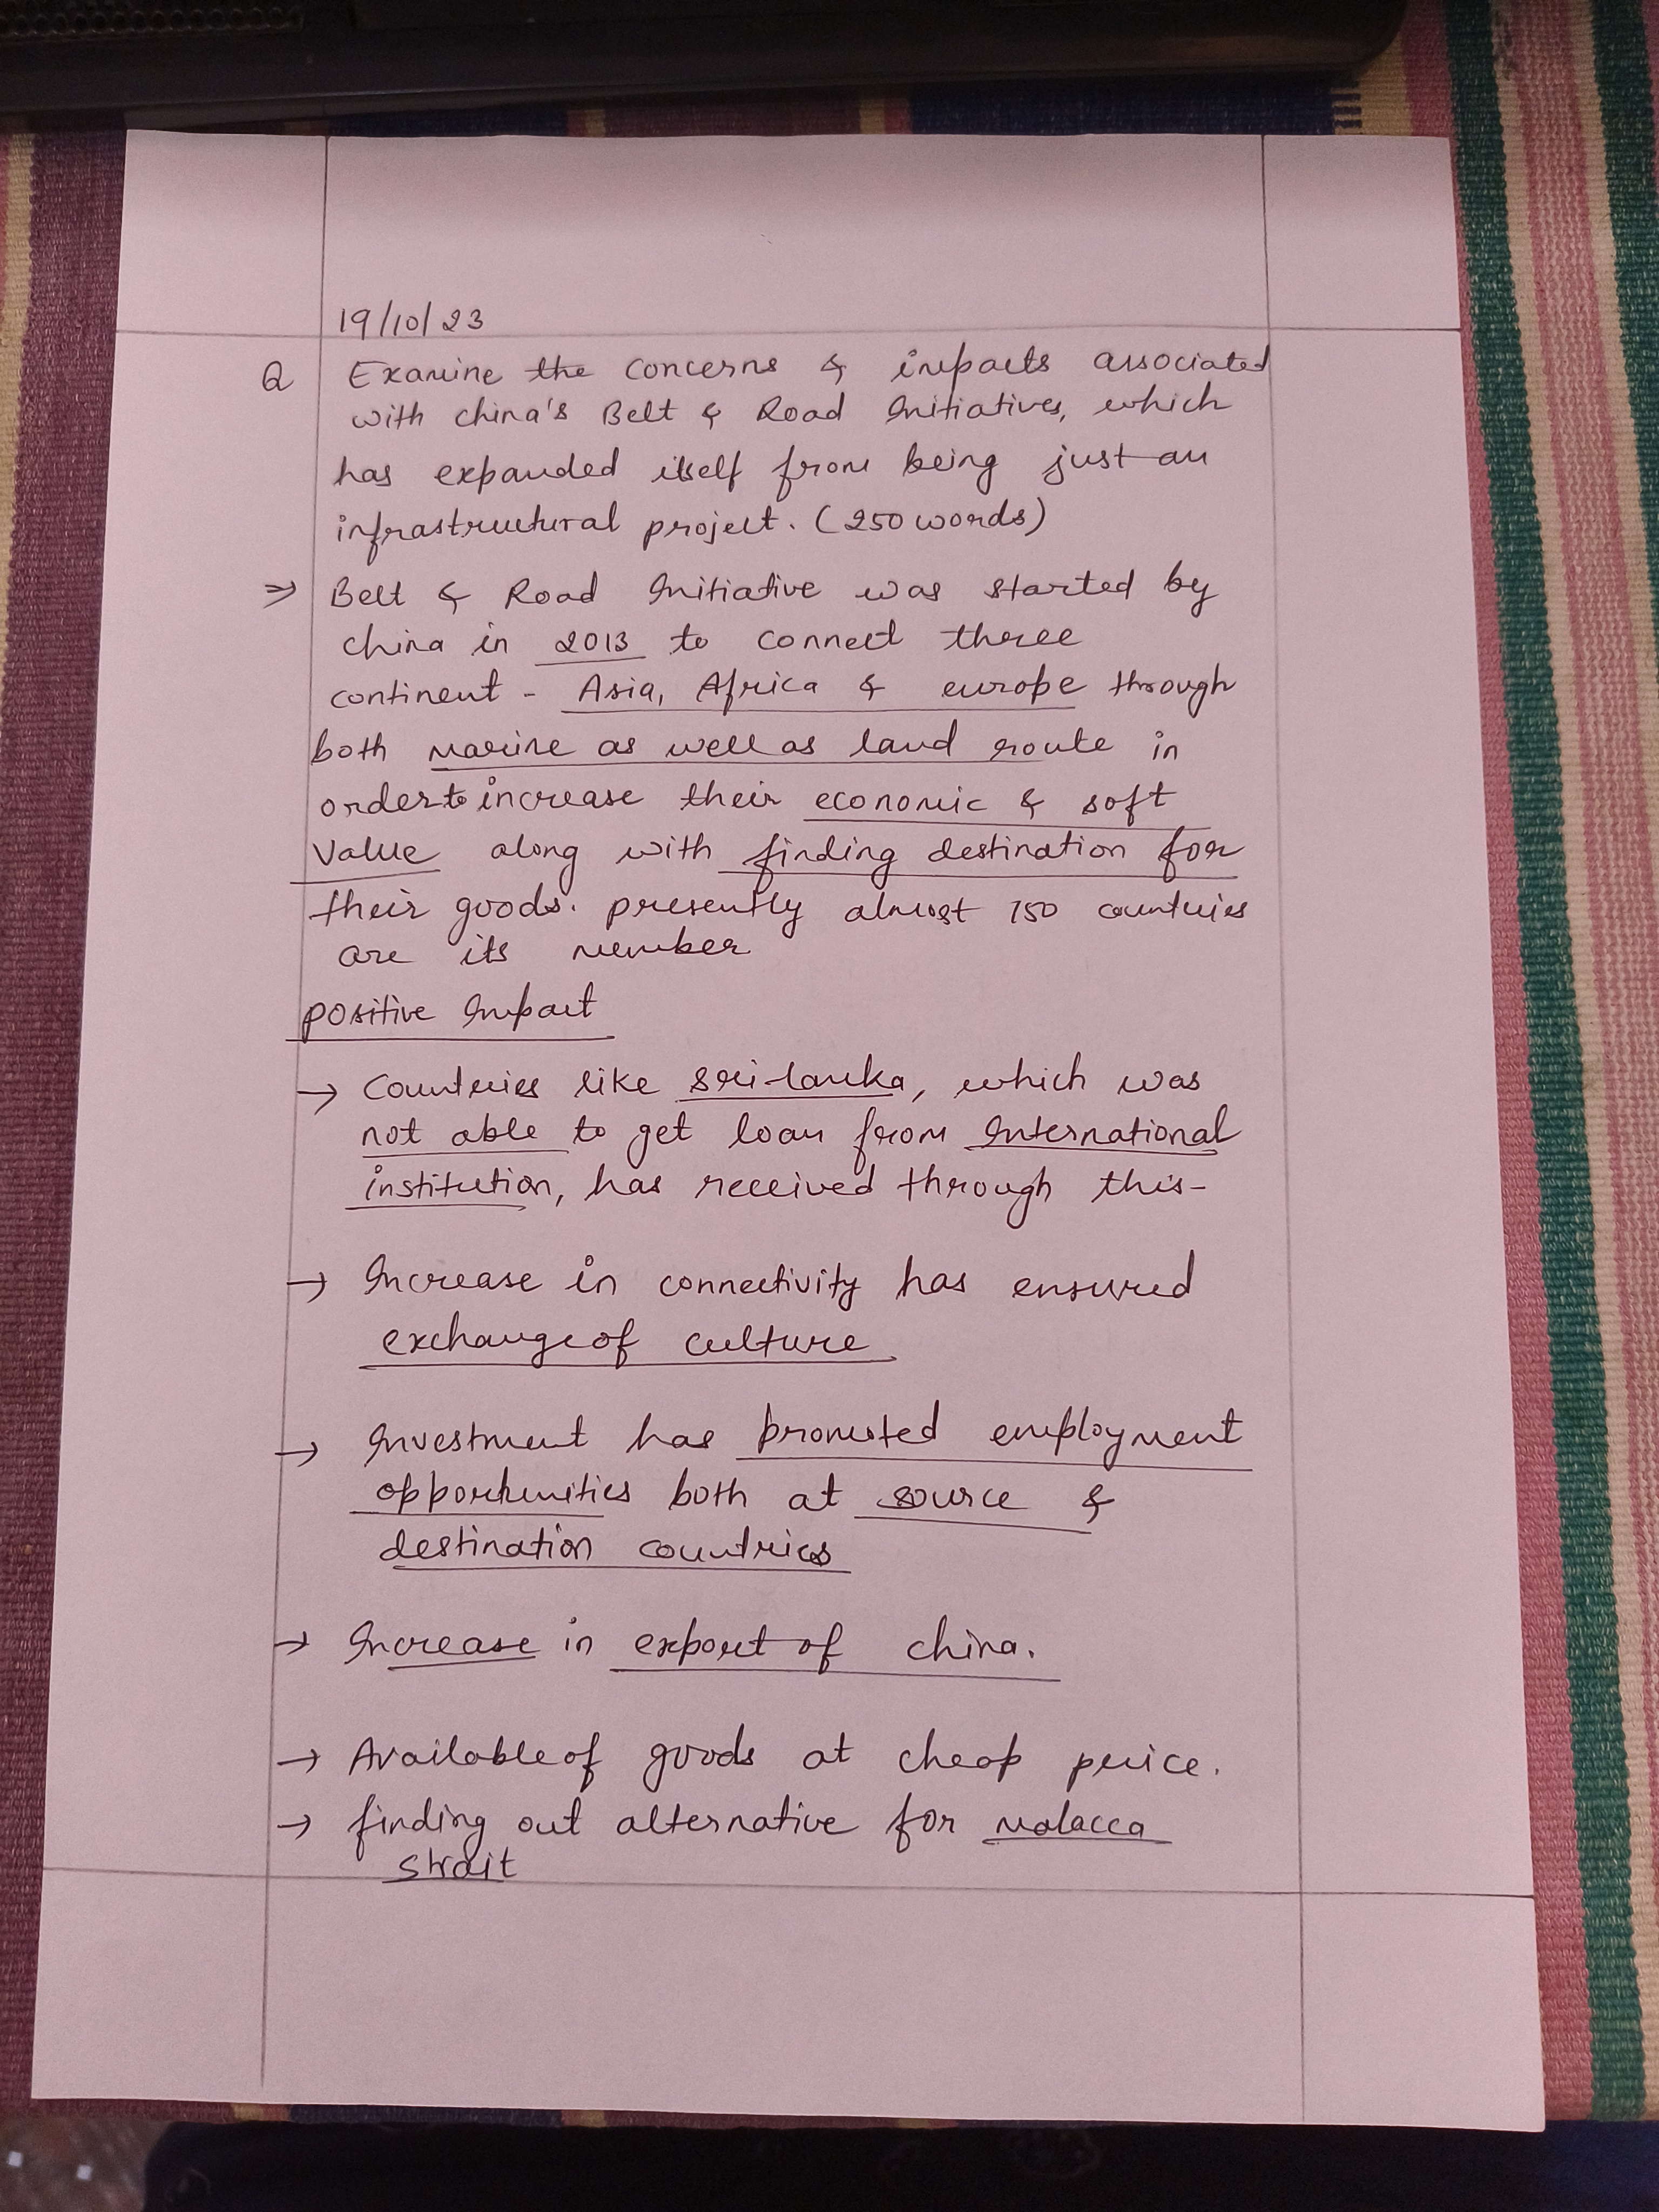 19/10/23
Q Examine the concerns & impacts associated
with china's Belt & Road Initiatives, which
has expanded itself from being just an
infrastructural project. (250 words)
⇒ Belt & Road Initiative was started by
china in 2013 to connect three
continent - Asia, Africa & europe through
both marine as well as land route in
order to increase their economic & soft
value along with finding destination for
their goods. presently almost 150 countries
are its member
positive Impact
→ Countries like sri-lanka, which was
not able to get loan from International
institution, has received through this-
→ Increase in connectivity has ensured
exchange of culture
→ Investment has promoted employment
opportunities both at source &
destination countries
→ Increase in export of china.
→ Available of goods at cheap price.
→ finding out alternative for malacca
strait